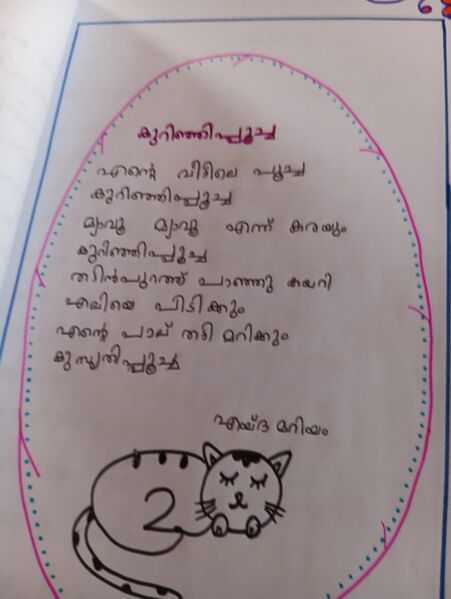 കുറിഞ്ഞിപ്പൂച്ച
എന്റെ വീട്ടിലെ പൂച്ച
കുറിഞ്ഞിപ്പൂച്ച
മ്യാവൂ മ്യാവൂ എന്ന് കരയും
കുറിഞ്ഞിപ്പൂച്ച
തട്ടിൻപുറത്ത് പാഞ്ഞു കയറി
എലിയെ പിടിക്കും
എന്റെ പാല് തട്ടി മറിക്കും
കുസൃതിപ്പൂച്ച
എയ്ദ മറിയം
2